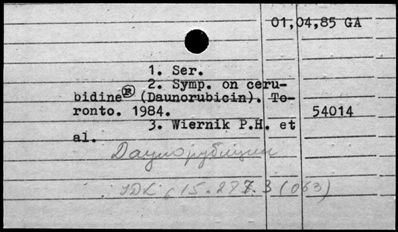 01,04,85 GA
1. Ser.
2. Symp. on ceru-
bidine® (Daunorubicin). To-
ronto. 1984.
54014
3. Wiernik P.H. et
al.
Даунорубицин
615.277.3 (063)